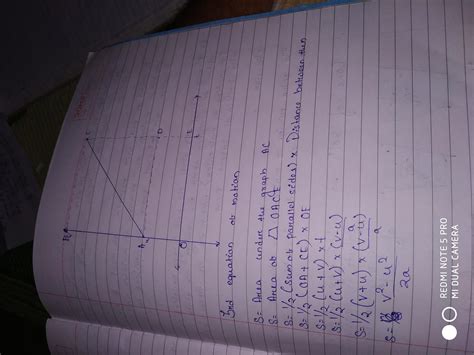 B
C
A
D
O
E
3rd equation of motion
S = Area under the graph AC
S = Area of △ OACE
S = 1/2 (Sum of parallel sides) × Distance between them
S = 1/2 (OA + CE) × OE
S = 1/2 (u + v) × t
S = 1/2 (u + v) × (v - u)
a
S = 1/2 (v + u) × (v - u)
a
S = v² - u²
2a
REDMI NOTE 5 PRO
MI DUAL CAMERA